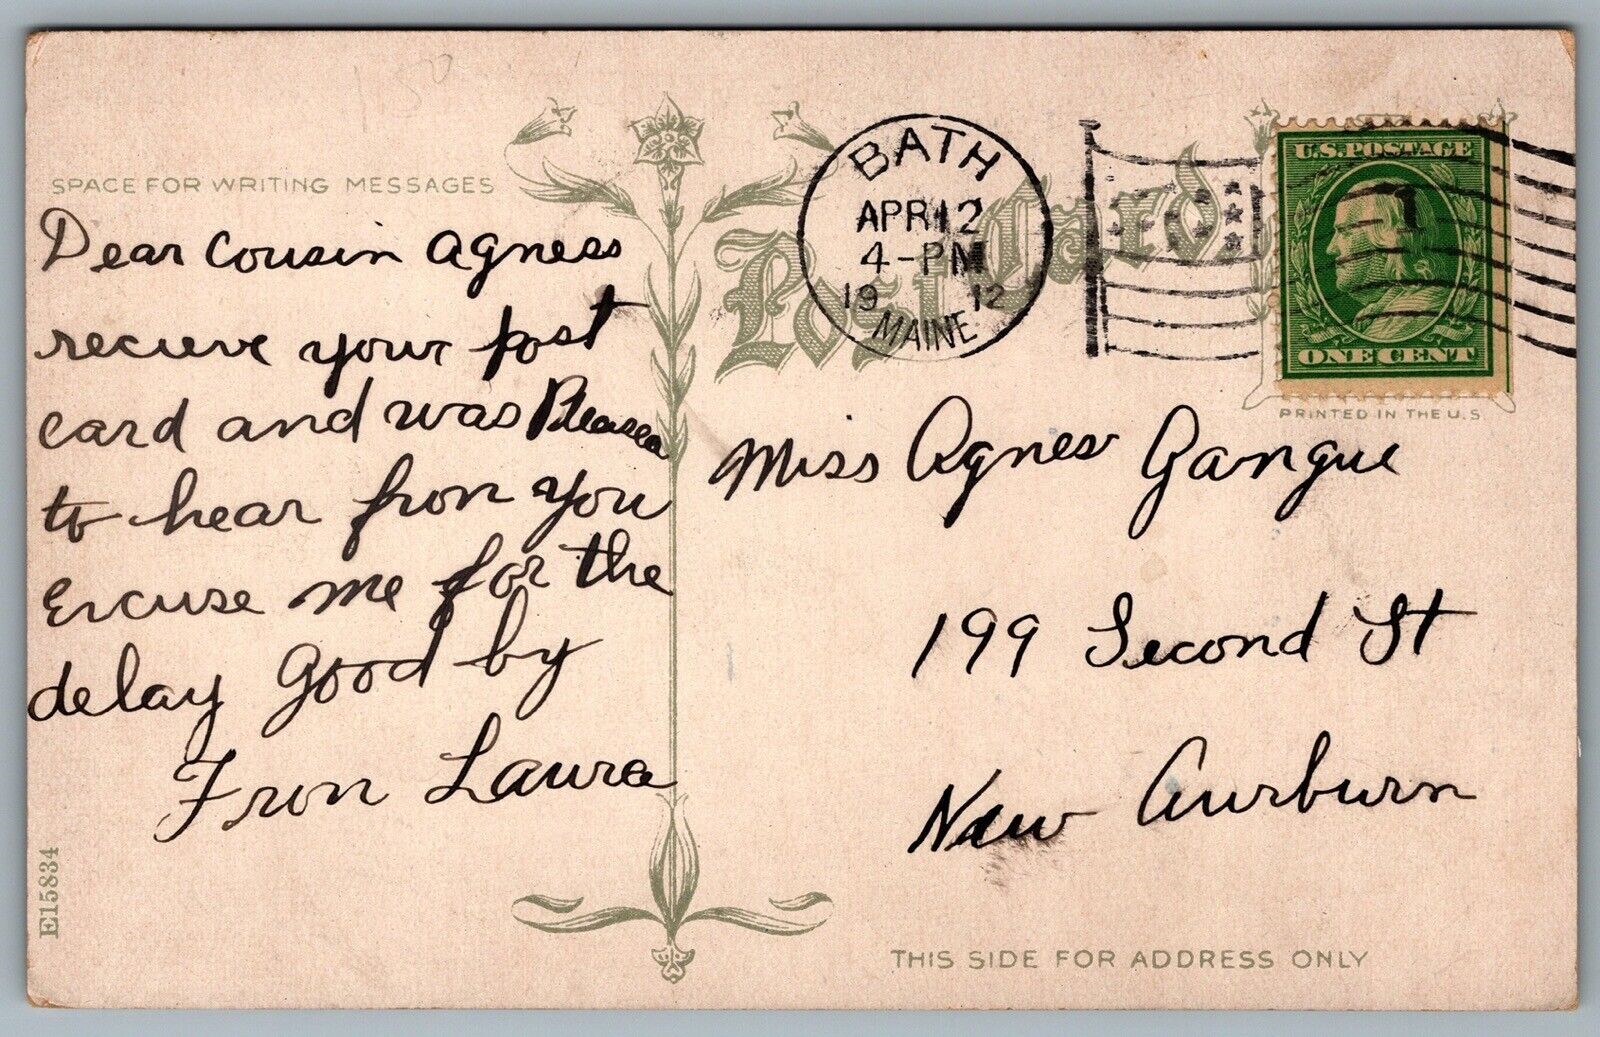 150
SPACE FOR WRITING MESSAGES
Dear Cousin Agness
recieve your post
card and was Pleased
to hear fron you
Excuse me for the
delay good by
Fron Laura
E15834
Post Card
BATH
APR 12
4-PM
19 12
MAINE
U.S. POSTAGE
1
ONE CENT
PRINTED IN THE U.S.
Miss Agnes Gangue
199 Second St
New Aurburn
THIS SIDE FOR ADDRESS ONLY